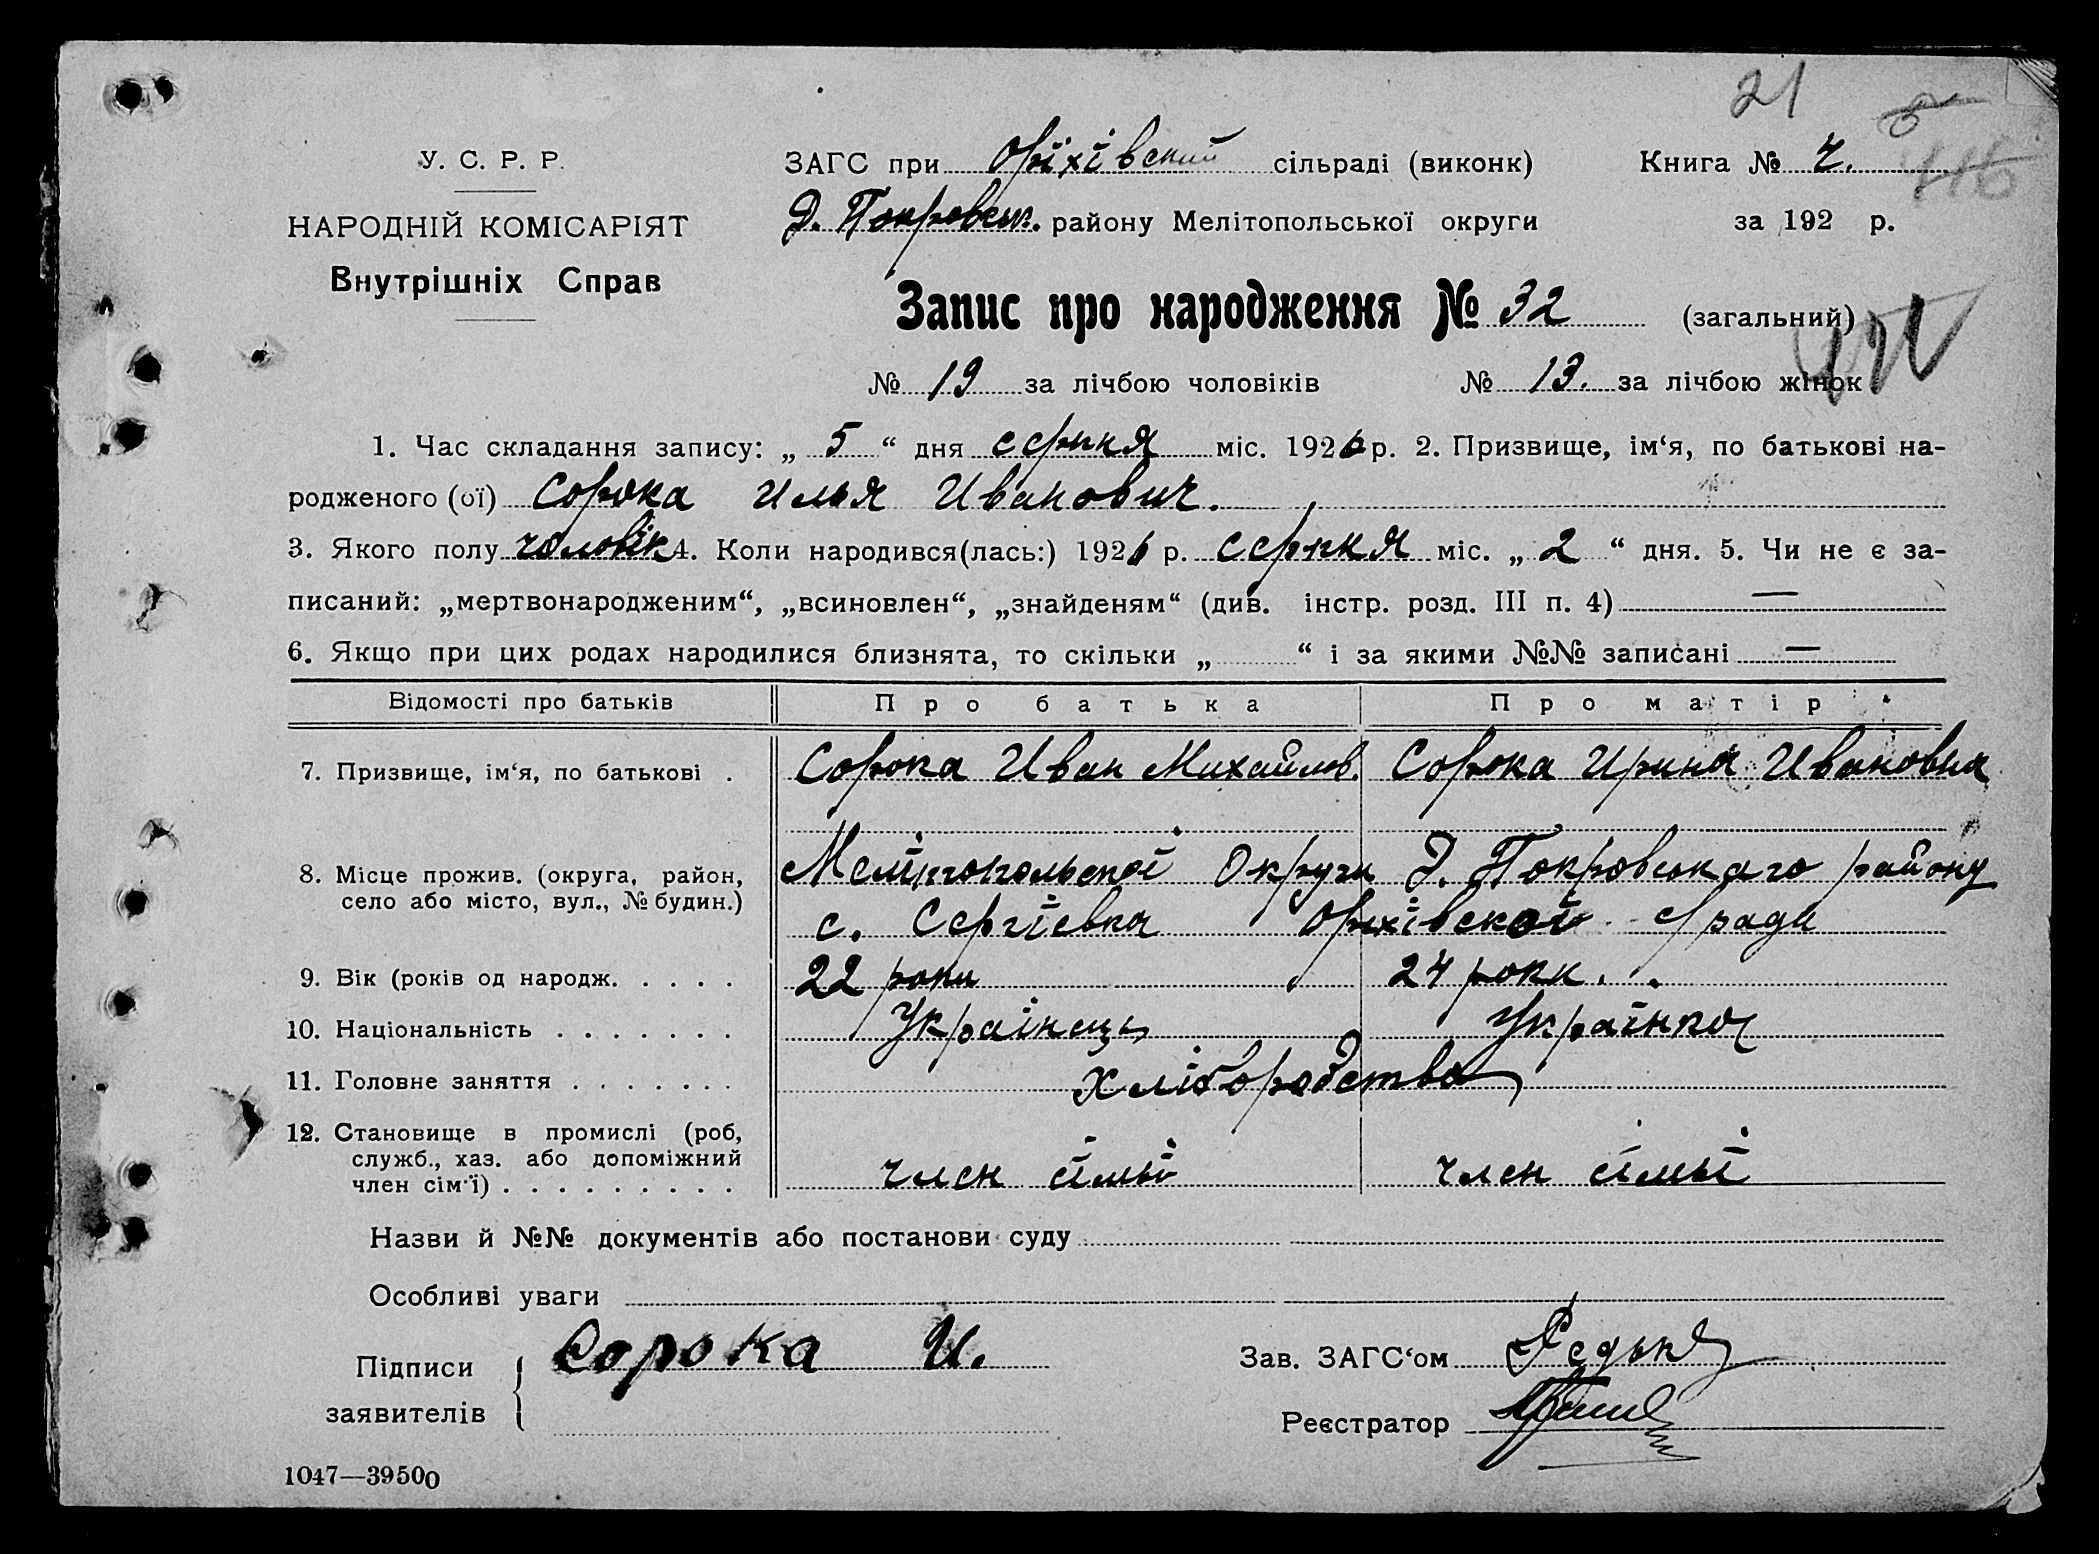 21
У. С. Р. Р.
ЗАГС при Оріхівский сільраді (виконк) Книга № 4.
НАРОДНІЙ КОМІСАРІЯТ
Д. Покровськ. району Мелітопольської округи за 192 р.
Внутрішніх Справ
Запис про народження № 32 (загальний)
№ 19 за лічбою чоловіків № 13. за лічбою жінок
1. Час складання запису: „ 5 “ дня серпня міс. 1926 р. 2. Призвище, ім‘я, по батькові на-
родженого (ої) Сорока Илья Иванович.
3. Якого полу чоловік 4. Коли народився(лась:) 1926 р. серпня міс. „ 2 “ дня. 5. Чи не є за-
писаний: „мертвонародженим“, „всиновлен“, „знайденям“ (див. інстр. розд. III п. 4) —
6. Якщо при цих родах народилися близнята, то скільки „ “ і за якими №№ записані —
Відомості про батьків Про батька Про матір
7. Призвище, ім‘я, по батькові . Сорока Иван Михайлов. Сорока Ирина Ивановна
8. Місце прожив. (округа, район, Мелітопольскої Округи Д. Покровськаго району
село або місто, вул., № будин.) с. Сергіевка Оріхівской С/ради
9. Вік (років од народж. . . . . 22 роки 24 роки.
10. Національність . . . . . . . Українець Українка
11. Головне заняття . . . . . . . Хліборобства
12. Становище в промислі (роб,
служб., хаз. або допоміжний
член сім‘ї) . . . . . . . . . член сімьї член сімьї
Назви й №№ документів або постанови суду
Особливі уваги
Підписи Сорока И. Зав. ЗАГС‘ом Редька
заявителів Реєстратор
1047—39500